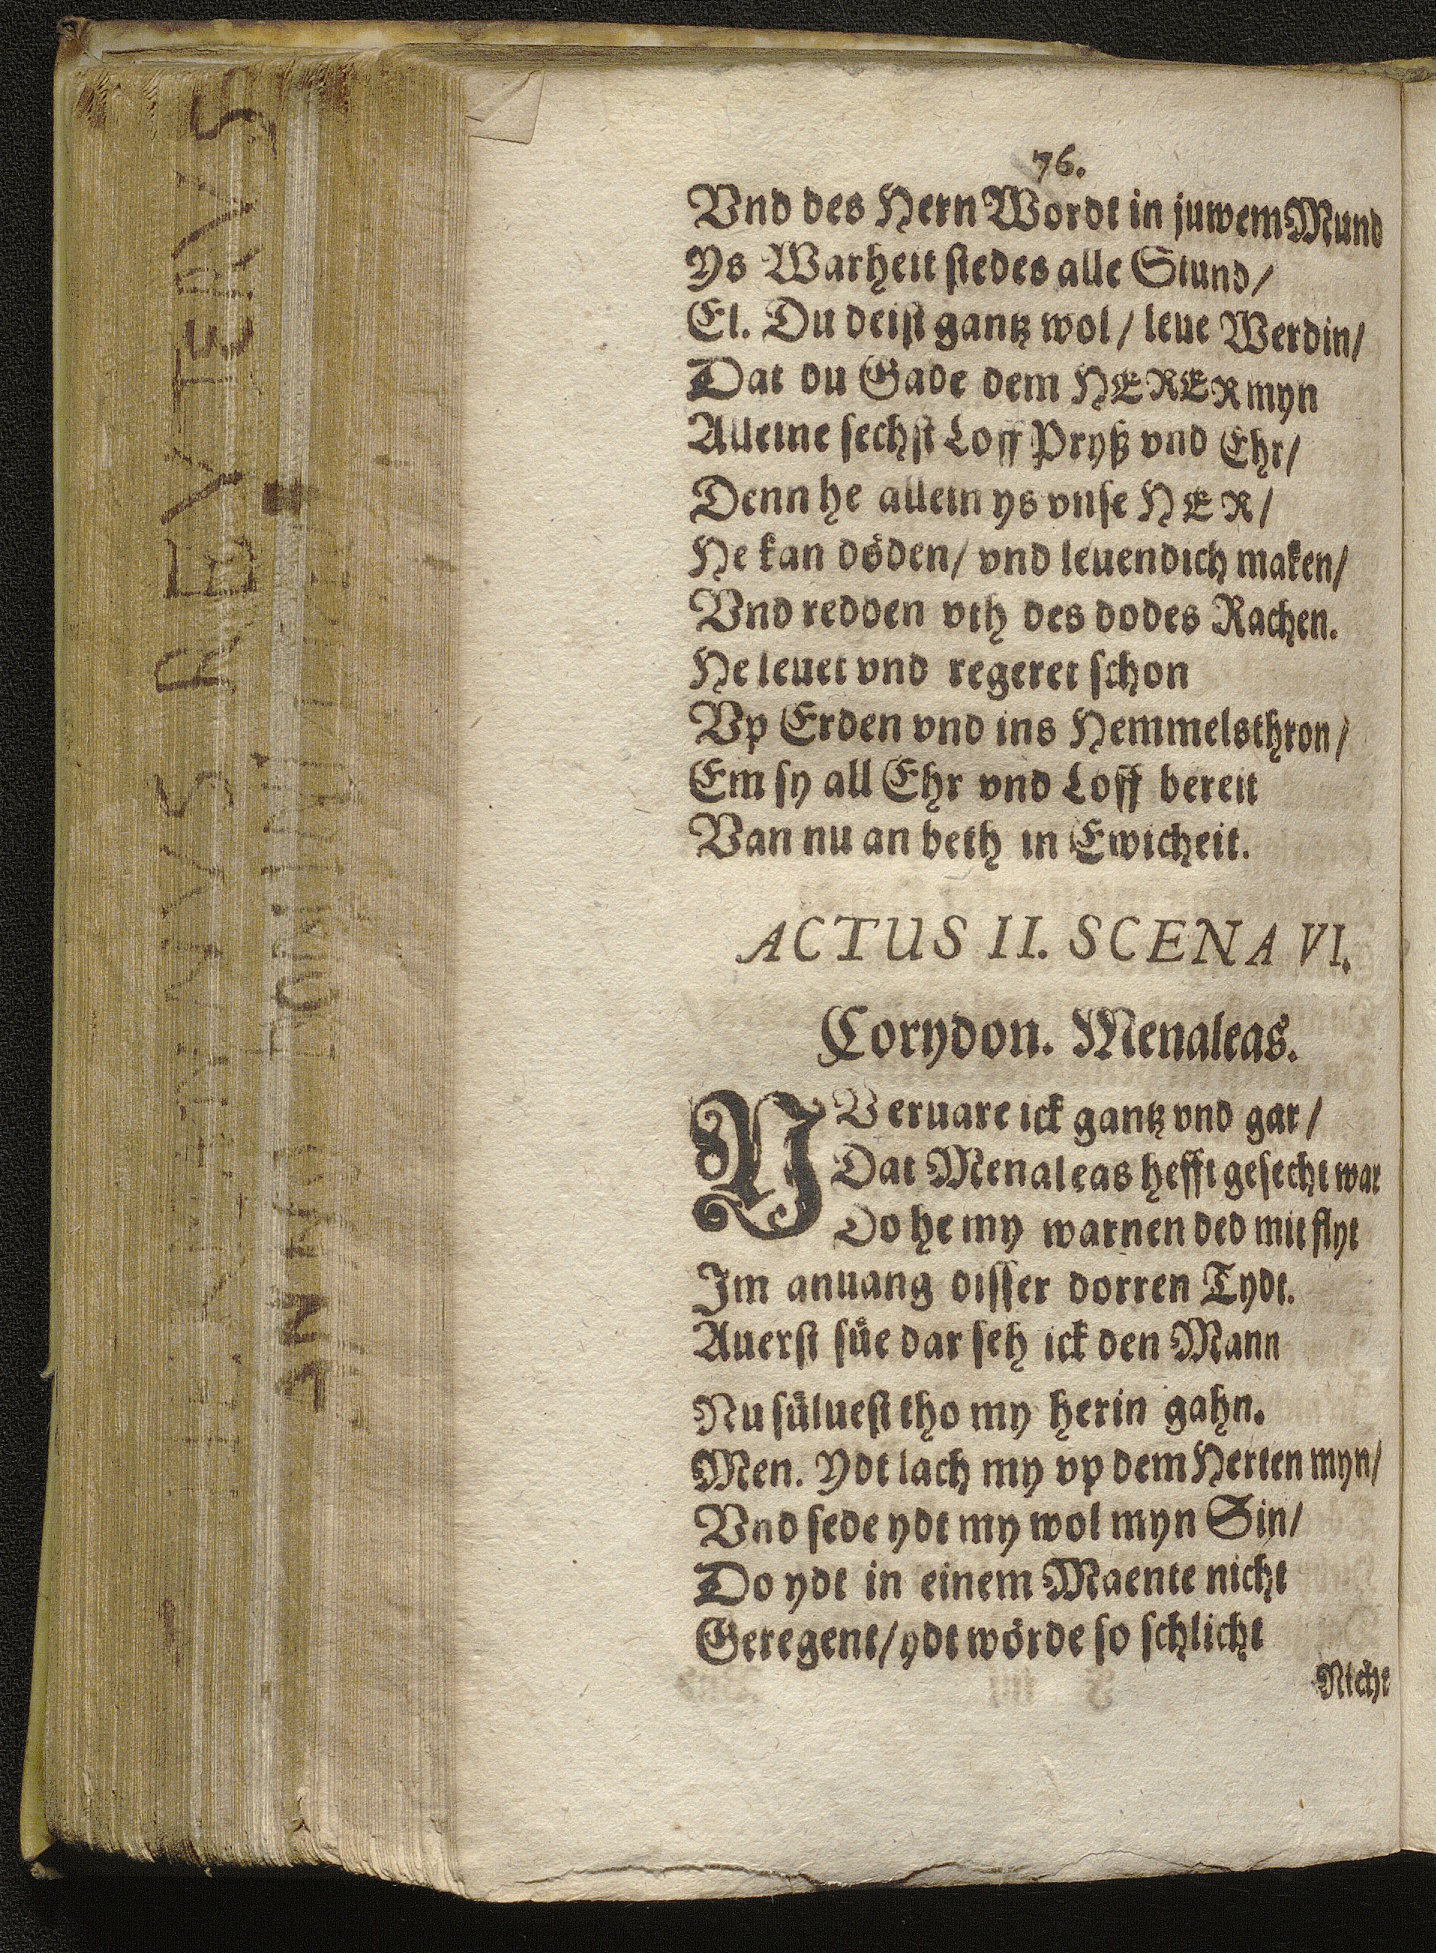 76.
Vnd des Hern Wordt in juwem Mund
Ys Warheit stedes alle Stund/
El. Du deist gantz wol/ leue Werdin/
Dat du Gade dem HERER myn
Alleine sechst Loff Pryß vnd Ehr/
Denn he allein ys vnse HER/
He kan döden/ vnd leuendich maken/
Vnd redden vth des dodes Rachen.
He leuet vnd regeret schon
Vp Erden vnd ins Hemmelsthron/
Em sy all Ehr vnd Loff bereit
Van nu an beth in Ewicheit.
ACTUS II. SCENA VI.
Corydon. Menalcas.
NV eruare ick gantz vnd gar/
Dat Menalcas hefft gesecht war
Do he my warnen ded mit flyt
Im anuang disser dorren Tydt.
Auerst süe dar seh ick den Mann
Nu süluest tho my herin gahn.
Men. Ydt lach my vp dem Herten myn/
Vnd sede ydt my wol myn Sin/
Do ydt in einem Maente nicht
Geregent/ ydt wörde so schlicht
Nicht